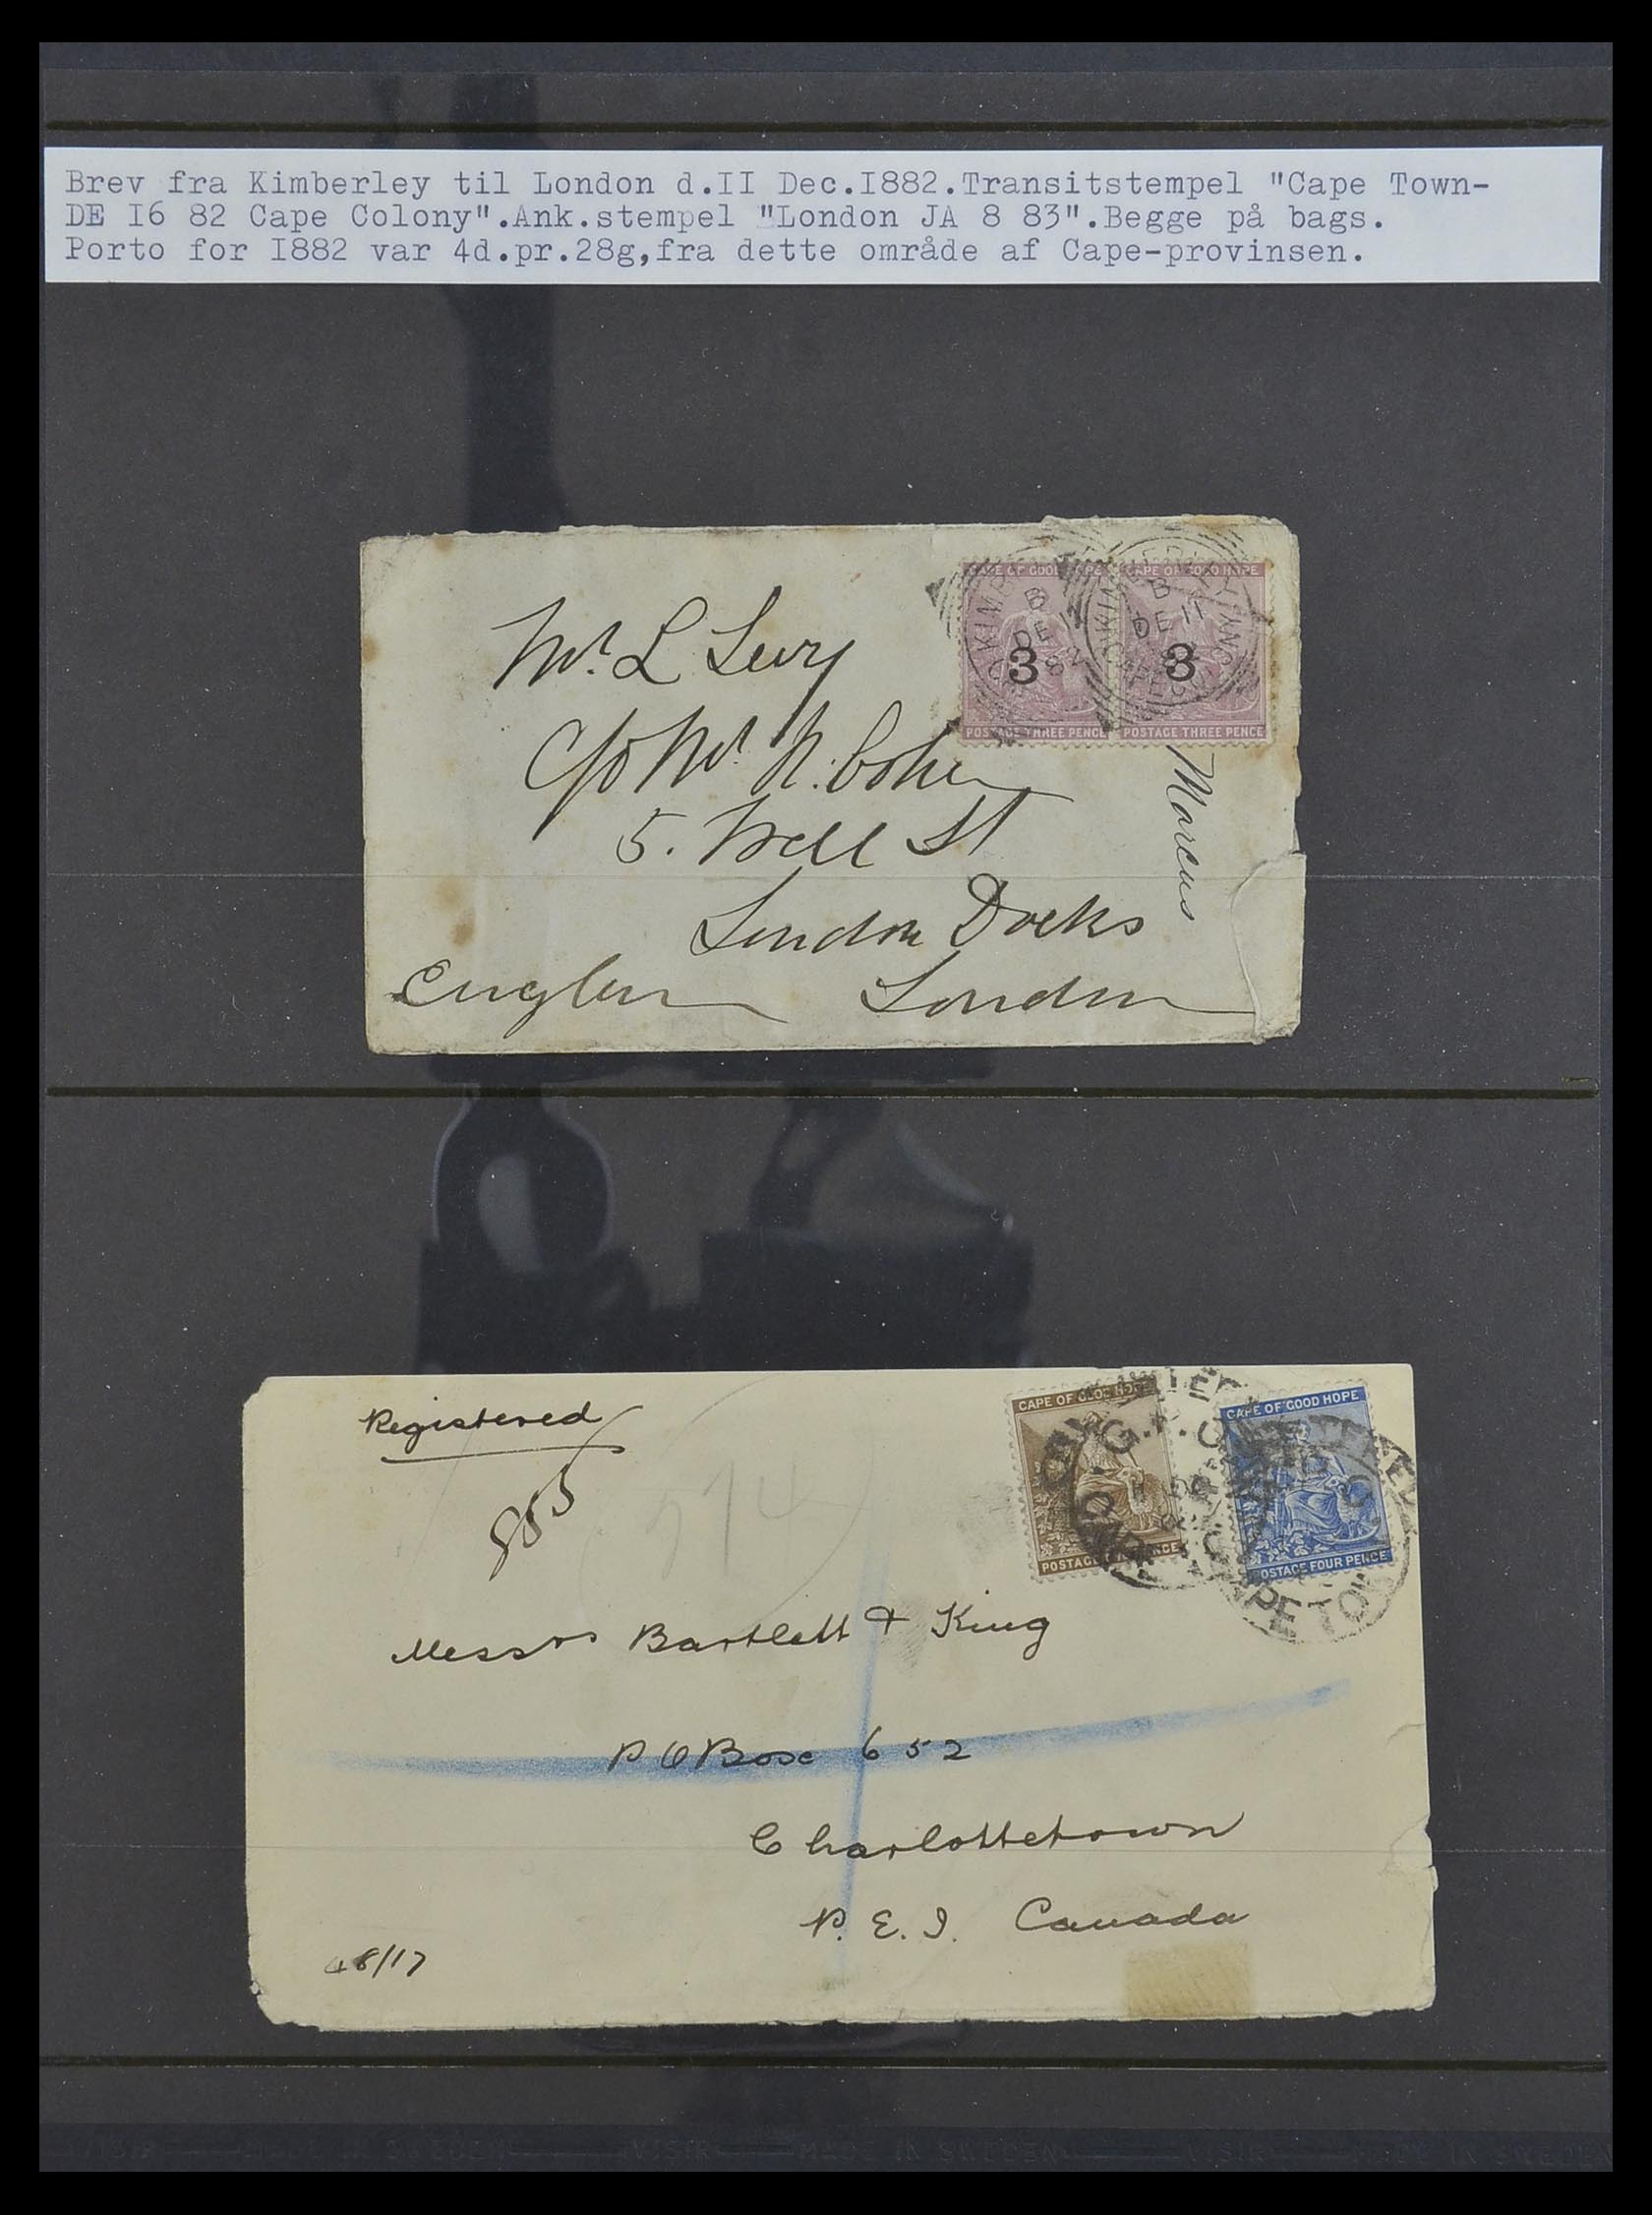 Brev fra Kimberley til London d.II Dec.I882.Transitstempel "Cape Town-
DE I6 82 Cape Colony".Ank.stempel "London JA 8 83".Begge på bags.
Porto for I882 var 4d.pr.28g,fra dette område af Cape-provinsen.
CAPE OF GOOD HOPE CAPE OF GOOD HOPE
B B
DE 11 DE 11
82
3 3
POSTAGE THREE PENCE POSTAGE THREE PENCE
Mr. L Levy
C/o Mr. N. Cohen
5. Well St
London Docks
London
England
Marcus
Registered
855
514
CAPE OF GOOD HOPE CAPE OF GOOD HOPE
G.P.O.
POSTAGE PENCE POSTAGE FOUR PENCE
CAPE TOWN
Messrs Bartlett & King
P O Box 652
Charlottetown
P. E. I. Canada
48/17
VISIR MADE IN SWEDEN VISIR MADE IN SWEDEN VISIR MADE IN SWEDEN